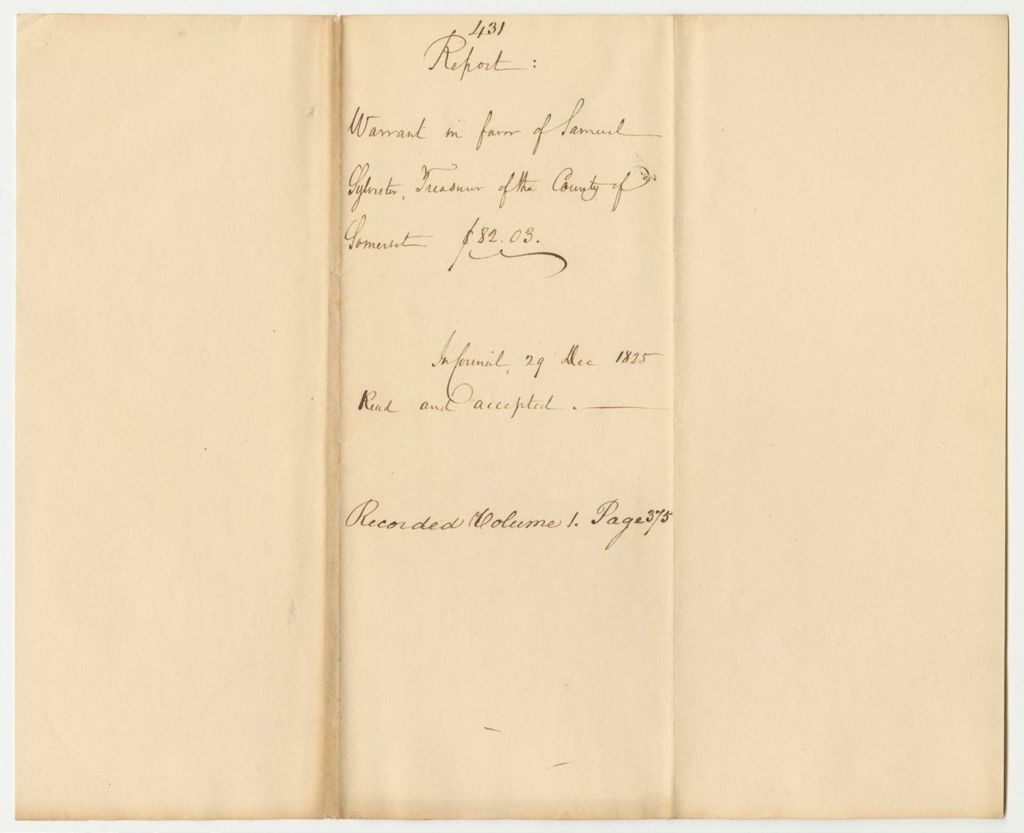 431
Report :
Warrant in favor of Samuel
Sylvester, Treasurer of the County of
Somerset $82.03.
In Council, 29 Dec 1825
Read and accepted .
Recorded Volume 1. Page 375